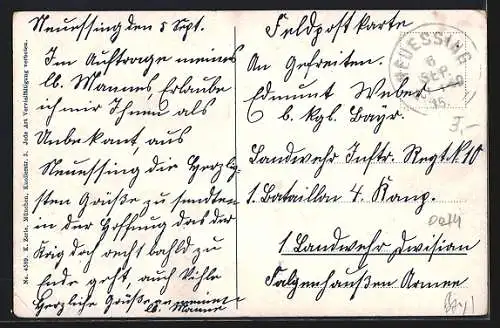 Neuessing den 5 Sept.
Im Auftrage meines
lb. Mannes, Erlaube
ich mir Ihnen als
Unbekant, aus
Neuessing die Herzlig-
sten Grüße zu senden
in der Hoffnung das der
Krig doch recht bahld zu
Ende geht, auch Viehle
Herzliche Grüße von meinen
lb. Manne
Feldpostkarte
An Gefreiten.
Edmunt Weber
b. kgl. Bayr.
Landwehr Inftr. Regt. N10
1. Bataillon 4. Komp.
1 Landwehr Division
Falgenhaußen Armee
NEUESSING
6
SEP.
15.
No. 4539. K. Zerle, München, Knollerstr. 3. Jede Art Vervielfältigung verboten.